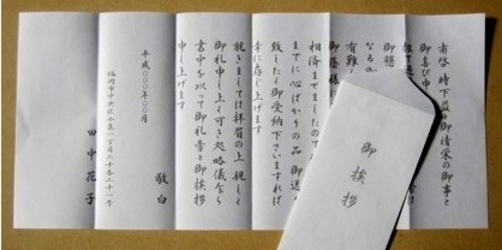 粛啓 時下益々御清栄の御事と
御喜び申
御懇
なる
有難
御蔭様に
相済ませましたので
までに心ばかりの品 御送り
致したく御受納下さいますれば
幸に存じ上げます
就きましては拝眉の上 親しく
御礼申し上ぐ可き処略儀乍ら
書中を以って御礼旁々御挨拶
申し上げます
敬白
平成〇〇〇年〇〇月
福岡市中央区今泉一丁目二十番二十一号
田中花子
御挨拶